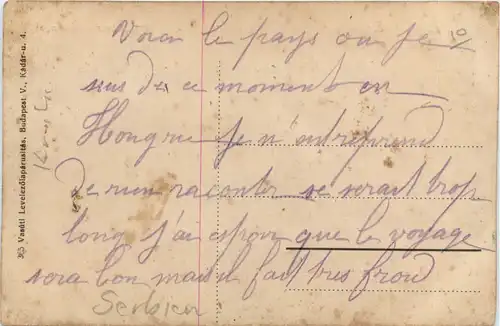 Voici le pays ou je
suis de ce moment en
Hongrie je n'entreprend
de rien raconter se serait trop
long j'ai espoir que le voyage
sera bon mais il fait tres froid
Serbien
10
363 Vasúti Levelezőlapárusitás, Budapest V., Kádár-u. 4.